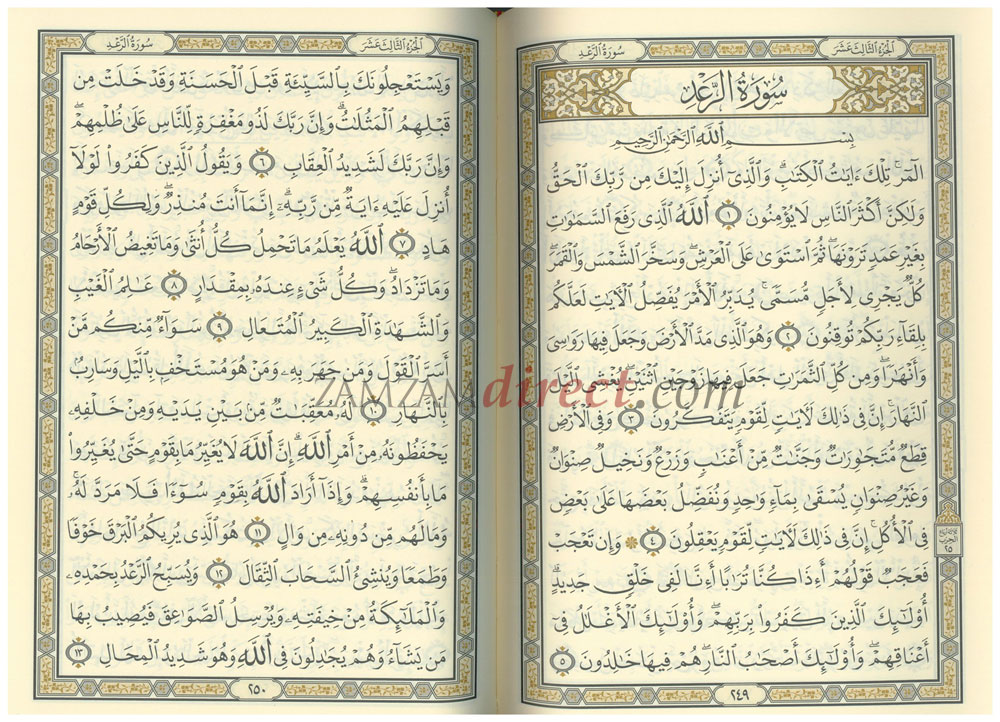 سورة الرعد
الجزء الثالث عشر
سُورَةُ الرَّعْدِ
بِسْمِ ٱللَّهِ ٱلرَّحْمَٰنِ ٱلرَّحِيمِ
الٓمٓر ۚ تِلْكَ ءَايَٰتُ ٱلْكِتَٰبِ ۗ وَٱلَّذِىٓ أُنزِلَ إِلَيْكَ مِن رَّبِّكَ ٱلْحَقُّ
وَلَٰكِنَّ أَكْثَرَ ٱلنَّاسِ لَا يُؤْمِنُونَ ١ ٱللَّهُ ٱلَّذِى رَفَعَ ٱلسَّمَٰوَٰتِ
بِغَيْرِ عَمَدٍ تَرَوْنَهَا ۖ ثُمَّ ٱسْتَوَىٰ عَلَى ٱلْعَرْشِ ۖ وَسَخَّرَ ٱلشَّمْسَ وَٱلْقَمَرَ ۖ
كُلٌّ يَجْرِى لِأَجَلٍ مُّسَمًّى ۚ يُدَبِّرُ ٱلْأَمْرَ يُفَصِّلُ ٱلْءَايَٰتِ لَعَلَّكُم
بِلِقَآءِ رَبِّكُمْ تُوقِنُونَ ٢ وَهُوَ ٱلَّذِى مَدَّ ٱلْأَرْضَ وَجَعَلَ فِيهَا رَوَٰسِىَ
وَأَنْهَٰرًا ۖ وَمِن كُلِّ ٱلثَّمَرَٰتِ جَعَلَ فِيهَا زَوْجَيْنِ ٱثْنَيْنِ ۖ يُغْشِى ٱلَّيْلَ
ٱلنَّهَارَ ۚ إِنَّ فِى ذَٰلِكَ لَءَايَٰتٍ لِّقَوْمٍ يَتَفَكَّرُونَ ٣ وَفِى ٱلْأَرْضِ
قِطَعٌ مُّتَجَٰوِرَٰتٌ وَجَنَّٰتٌ مِّنْ أَعْنَٰبٍ وَزَرْعٌ وَنَخِيلٌ صِنْوَانٌ
وَغَيْرُ صِنْوَانٍ يُسْقَىٰ بِمَآءٍ وَٰحِدٍ وَنُفَضِّلُ بَعْضَهَا عَلَىٰ بَعْضٍ
فِى ٱلْأُكُلِ ۚ إِنَّ فِى ذَٰلِكَ لَءَايَٰتٍ لِّقَوْمٍ يَعْقِلُونَ ٤ ۞ وَإِن تَعْجَبْ
فَعَجَبٌ قَوْلُهُمْ أَءِذَا كُنَّا تُرَٰبًا أَءِنَّا لَفِى خَلْقٍ جَدِيدٍ ۗ
أُو۟لَٰٓئِكَ ٱلَّذِينَ كَفَرُوا۟ بِرَبِّهِمْ ۖ وَأُو۟لَٰٓئِكَ ٱلْأَغْلَٰلُ فِىٓ
أَعْنَاقِهِمْ ۖ وَأُو۟لَٰٓئِكَ أَصْحَٰبُ ٱلنَّارِ ۖ هُمْ فِيهَا خَٰلِدُونَ ٥
الحزب
٢٥
٢٤٩
سورة الرعد
الجزء الثالث عشر
وَيَسْتَعْجِلُونَكَ بِٱلسَّيِّئَةِ قَبْلَ ٱلْحَسَنَةِ وَقَدْ خَلَتْ مِن
قَبْلِهِمُ ٱلْمَثُلَٰتُ ۗ وَإِنَّ رَبَّكَ لَذُو مَغْفِرَةٍ لِّلنَّاسِ عَلَىٰ ظُلْمِهِمْ ۖ
وَإِنَّ رَبَّكَ لَشَدِيدُ ٱلْعِقَابِ ٦ وَيَقُولُ ٱلَّذِينَ كَفَرُوا۟ لَوْلَآ
أُنزِلَ عَلَيْهِ ءَايَةٌ مِّن رَّبِّهِۦٓ ۗ إِنَّمَآ أَنتَ مُنذِرٌ ۖ وَلِكُلِّ قَوْمٍ
هَادٍ ٧ ٱللَّهُ يَعْلَمُ مَا تَحْمِلُ كُلُّ أُنثَىٰ وَمَا تَغِيضُ ٱلْأَرْحَامُ
وَمَا تَزْدَادُ ۖ وَكُلُّ شَىْءٍ عِندَهُۥ بِمِقْدَارٍ ٨ عَٰلِمُ ٱلْغَيْبِ
وَٱلشَّهَٰدَةِ ٱلْكَبِيرُ ٱلْمُتَعَالِ ٩ سَوَآءٌ مِّنكُم مَّنْ
أَسَرَّ ٱلْقَوْلَ وَمَن جَهَرَ بِهِۦ وَمَنْ هُوَ مُسْتَخْفٍۭ بِٱلَّيْلِ وَسَارِبٌۢ
بِٱلنَّهَارِ ١٠ لَهُۥ مُعَقِّبَٰتٌ مِّنۢ بَيْنِ يَدَيْهِ وَمِنْ خَلْفِهِۦ
يَحْفَظُونَهُۥ مِنْ أَمْرِ ٱللَّهِ ۗ إِنَّ ٱللَّهَ لَا يُغَيِّرُ مَا بِقَوْمٍ حَتَّىٰ يُغَيِّرُوا۟
مَا بِأَنفُسِهِمْ ۗ وَإِذَآ أَرَادَ ٱللَّهُ بِقَوْمٍ سُوٓءًا فَلَا مَرَدَّ لَهُۥ ۚ
وَمَا لَهُم مِّن دُونِهِۦ مِن وَالٍ ١١ هُوَ ٱلَّذِى يُرِيكُمُ ٱلْبَرْقَ خَوْفًا
وَطَمَعًا وَيُنشِئُ ٱلسَّحَابَ ٱلثِّقَالَ ١٢ وَيُسَبِّحُ ٱلرَّعْدُ بِحَمْدِهِۦ
وَٱلْمَلَٰٓئِكَةُ مِنْ خِيفَتِهِۦ وَيُرْسِلُ ٱلصَّوَٰعِقَ فَيُصِيبُ بِهَا
مَن يَشَآءُ وَهُمْ يُجَٰدِلُونَ فِى ٱللَّهِ وَهُوَ شَدِيدُ ٱلْمِحَالِ ١٣
٢٥٠
ZAMZAMdirect.com